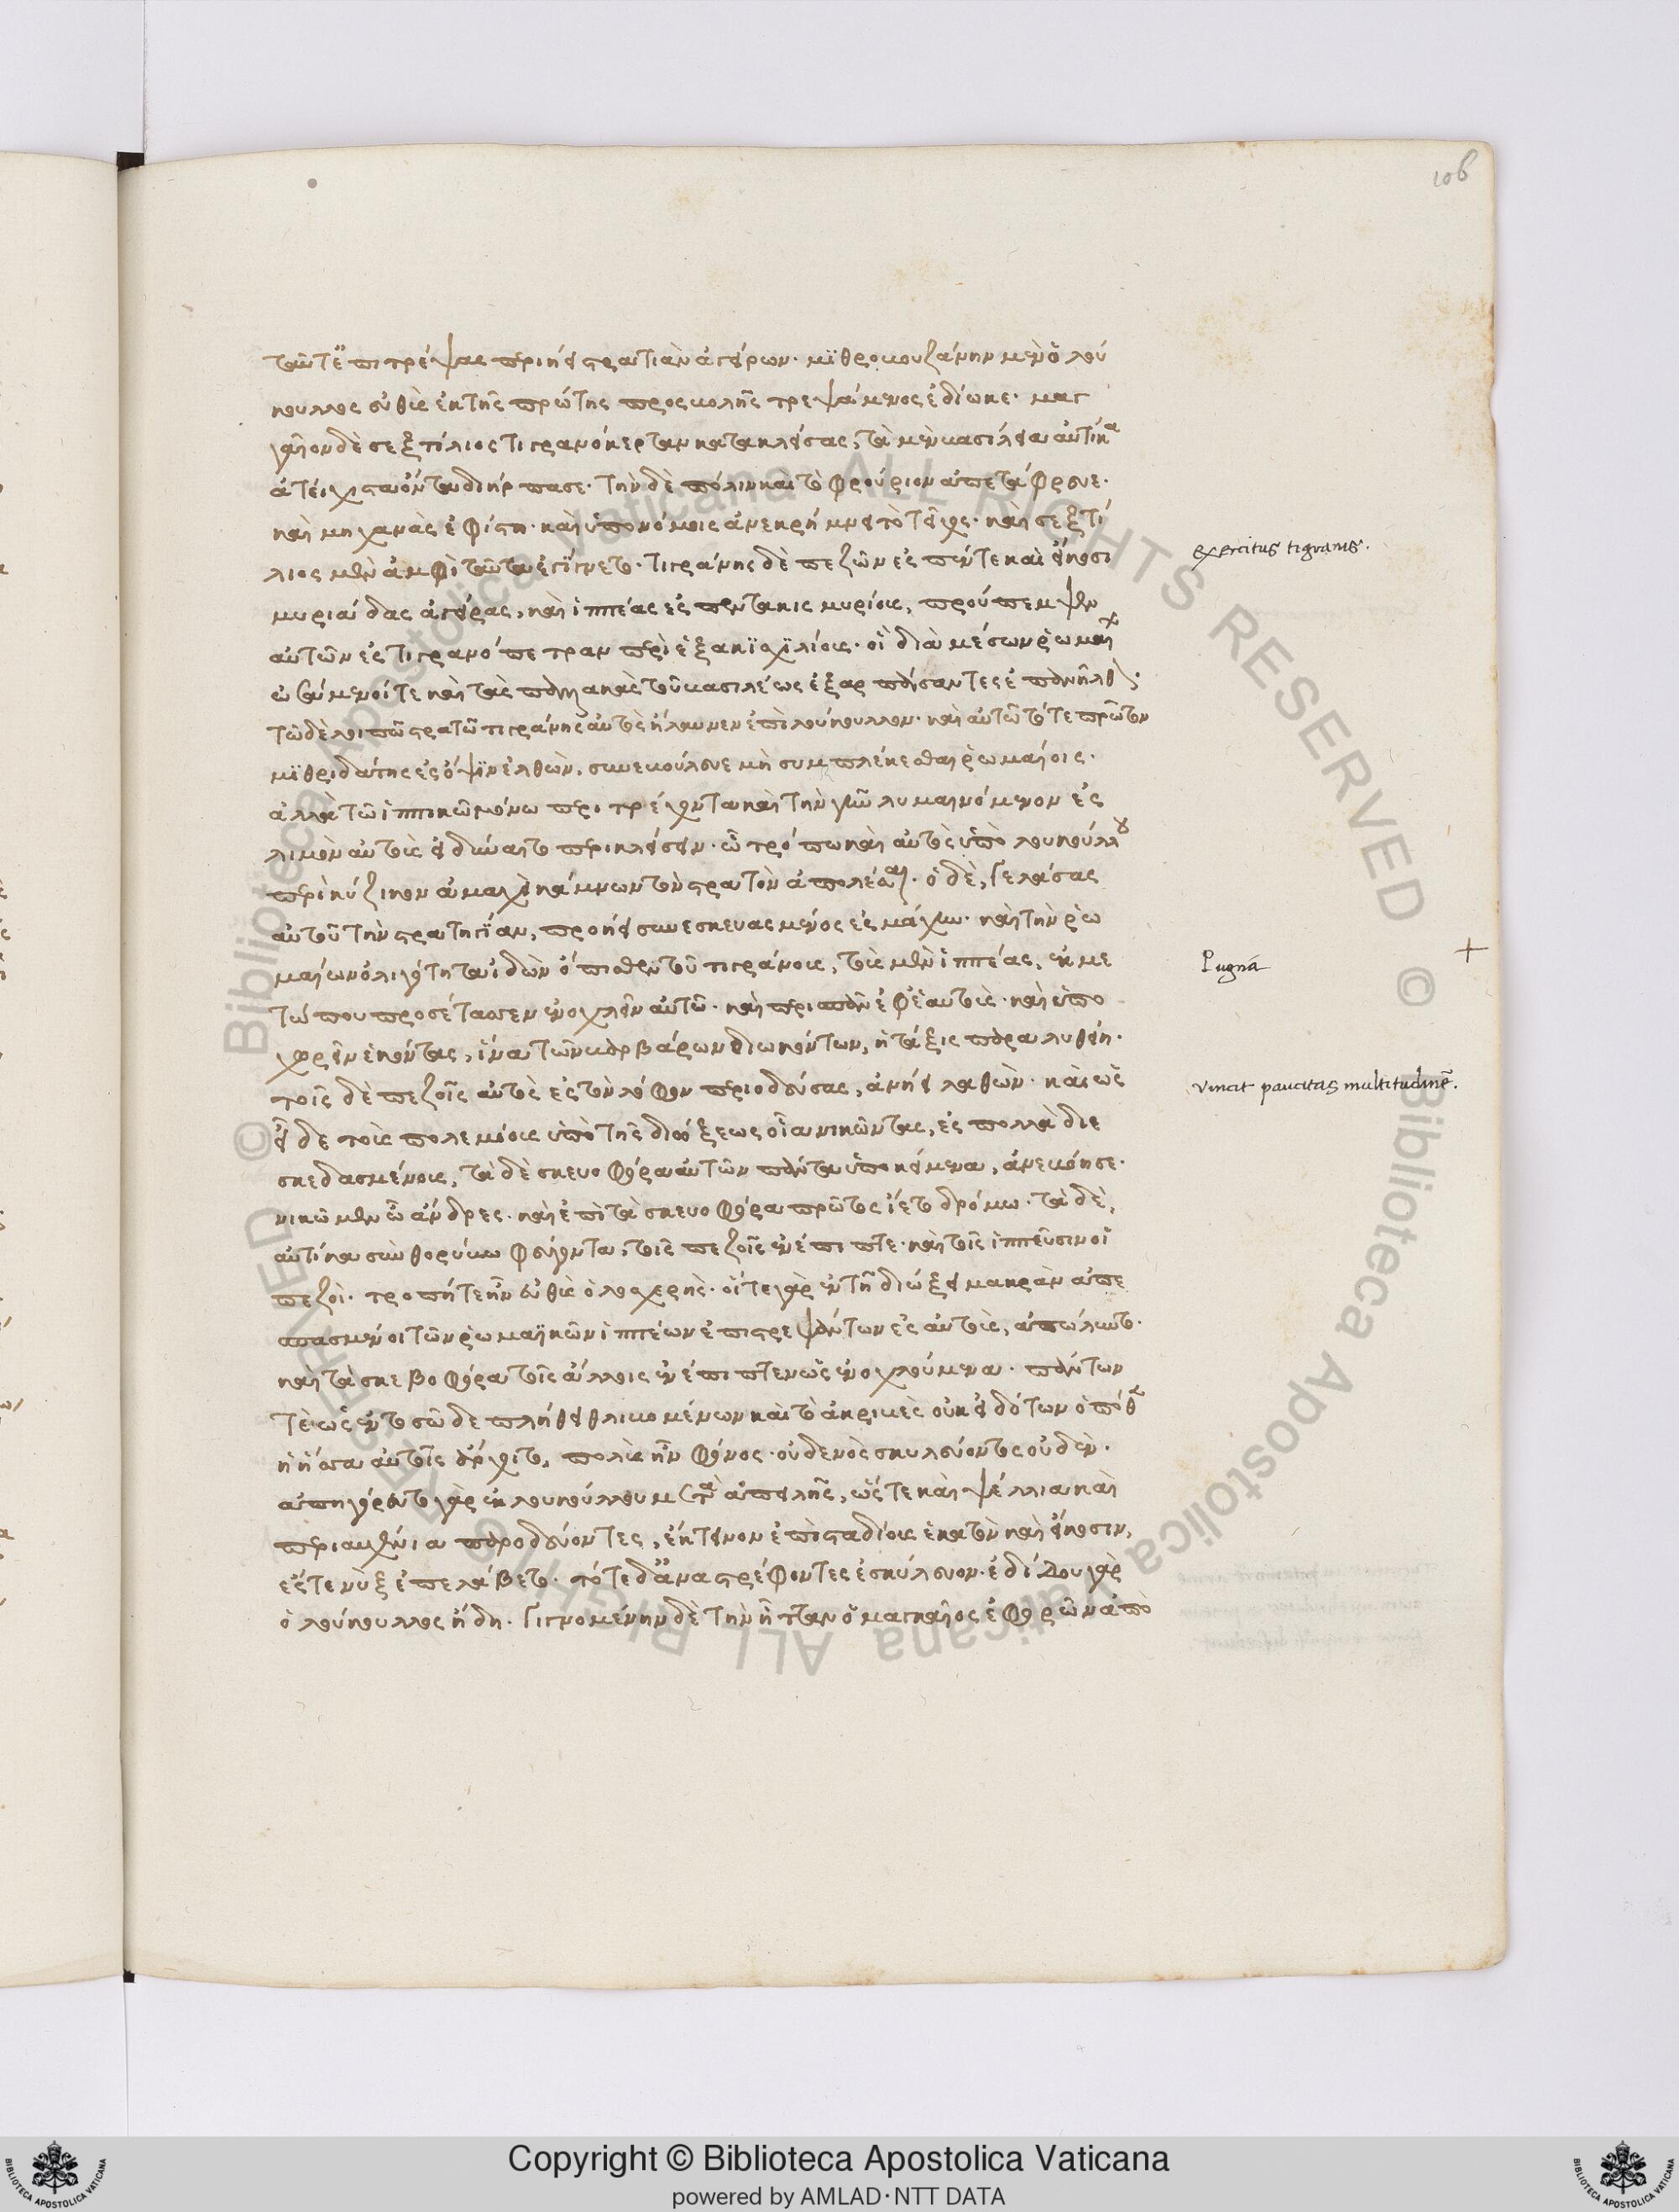 ταῦτ' ἐπιτρέψας περιήει στρατιὰν ἀγείρων· μϊθροβουζάνην μὲν ὁ λού
κουλλος εὐθὺς ἐκ τῆς πρώτης προσβολῆς τρεψάμενος ἐδίωκε· μαγ
καῖον δὲ σεξτίλιος τιγρανόκερταν κατακλείσας, τὰ μὲν βασίλεια αὐτίκα
ἀτείχιστα ὄντα διήρπασε· τὴν δὲ πόλιν καὶ τὸ φρούριον ἀπετάφρευε·
καὶ μηχανὰς ἐφίστη· καὶ ὑπονόμοις ἀνεκρήμνει τὸ τεῖχος· καὶ σεξτί
λιος μὲν ἀμφὶ ταῦτα ἐγίγνετο· τιγράνης δὲ πεζῶν ἐς πέντε καὶ εἴκοσι
μυριάδας ἀγείρας, καὶ ἱππέας ἐς πεντακις μυρίους, προύπεμψεν
αὐτῶν ἐς τιγρανόπετραν περὶ ἑξακϊσχϊλίους· οἳ διὰ μέσων ῥωμαίων
ὠσάμενοί τε καὶ τὰς παλλακὰς τοῦ βασιλέως ἐξαρπάσαντες ἐπανῆλθον·
τῶ δὲ λοιπῶ στρατῶ τιγράνης αὐτὸς ἤλαυνεν ἐπὶ λούκουλλον· καὶ αὐτῶ τότε πρῶτον
μϊθριδάτης ἐς ὄψϊν ἐλθὼν, συνεβούλευε μὴ συμπλέκεσθαι ῥωμαίοις·
ἀλλὰ τῶ ἱππικῶ μόνω περιτρέχοντα καὶ τὴν γῆν λυμαινόμενον ἐς
λιμὸν αὐτοὺς εἰ δύναιτο περικλείσειν· ὧ τρόπω καὶ αὐτὸς ὑπὸ λουκούλλου
περὶ κύζικον ἀμαχὶ κάμνων τὸν στρατὸν ἀπολέσαι· ὁ δὲ, γελάσας
αὐτοῦ τὴν στρατηγίαν, προήει συνεσκευασμένος ἐς μάχην· καὶ τὴν ῥω
μαίων ὀλιγότητα ἰδὼν ὄπισθεν τοῦ τιγράνους, τοὺς μὲν ἱππέας, ἐκ με
τώπου προσέτασσεν ἐνοχλεῖν αὐτῶ· καὶ περισπᾶν ἐφ' ἑαυτοὺς· καὶ ὑπο
χωρεῖν ἑκόντας, ἵνα τῶν βαρβάρων διωκόντων, ἡ τάξις παραλυθείη·
τοῖς δὲ πεζοῖς αὐτὸς ἐς τὸν λόφον περιοδεύσας, ἀνήει λαθὼν· καὶ ὡς
εἶδε τοὺς πολεμίους ὑπὸ τῆς διώξεως οἷα νικῶντας, ἐς πολλὰ διε
σκεδασμένους, τὰ δὲ σκευοφόρα αὐτῶν πάντα ὑποκείμενα, ἀνεβόησε·
νικῶμεν ὦ ἄνδρες· καὶ ἐπὶ τὰ σκευοφόρα πρῶτος ἵετο δρόμω· τὰ δὲ,
αὐτίκα σὺν θορύβω φεύγοντα, τοῖς πεζοῖς ἐνέπιπτε· καὶ τοῖς ἱππεῦσιν οἱ
πεζοί· τροπή τε ἦν εὐθὺς ὁλοχερὴς· οἵ τε γὰρ ἐν τῆ διώξει μακρὰν ἀπε
σπασμένοι τῶν ῥωμαϊκῶν ἱππέων ἐπιστρεψάντων ἐς αὐτοὺς, ἀπώλλυντο·
καὶ τὰ σκεβοφόρα τοῖς ἄλλοις ἐνέπιπτεν ὡς ἐνοχλούμενα· πάντων
τὲ ὡς ἐν τοσῶδε πλήθει θλιβομένων καὶ τὸ ἀκριβὲς οὐκ εἰδότων ὁπόθεν
ἡ ἧσσα αὐτοῖς ἄρχοιτο, πολὺς ἦν φόνος· οὐδενὸς σκυλεύοντος οὐδέν·
ἀπηγόρευτο γὰρ ἐκ λουκούλλου μετὰ ἀπειλῆς, ὥστε καὶ ψέλλια καὶ
περιαυχένια παροδεύοντες, ἔκτεινον ἐπὶ σταδίους ἑκατὸν καὶ εἴκοσιν,
ἔστε νὺξ ἐπελάβετο· τότε δ' ἀναστρέφοντες ἐσκύλευον· ἐδίδου γὰρ
ὁ λούκουλλος ἤδη· γιγνομένην δὲ τὴν ἧτταν ὁ μαγκαῖος ἐφορῶν ἀπὸ
106
exercitus tigranis.
Pugna
vincit paucitas multitudinẽ.
Copyright © Biblioteca Apostolica Vaticana
powered by AMLAD·NTT DATA